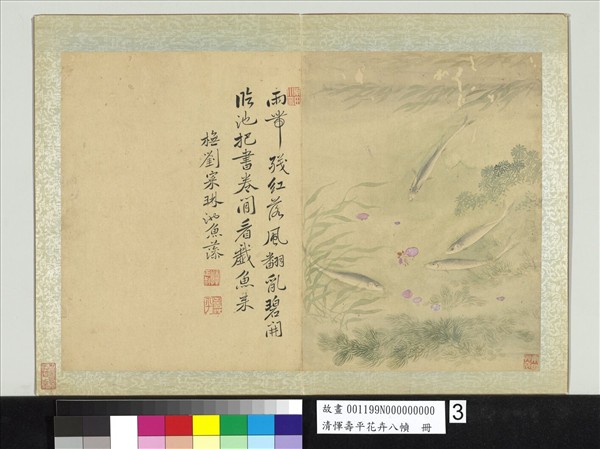 雨帶殘紅落風翻亂碧開
臨池把書卷閒看戲魚來
橅劉寀琳池魚藻
故畫 001199N000000000
清惲壽平花卉八幀　冊
3